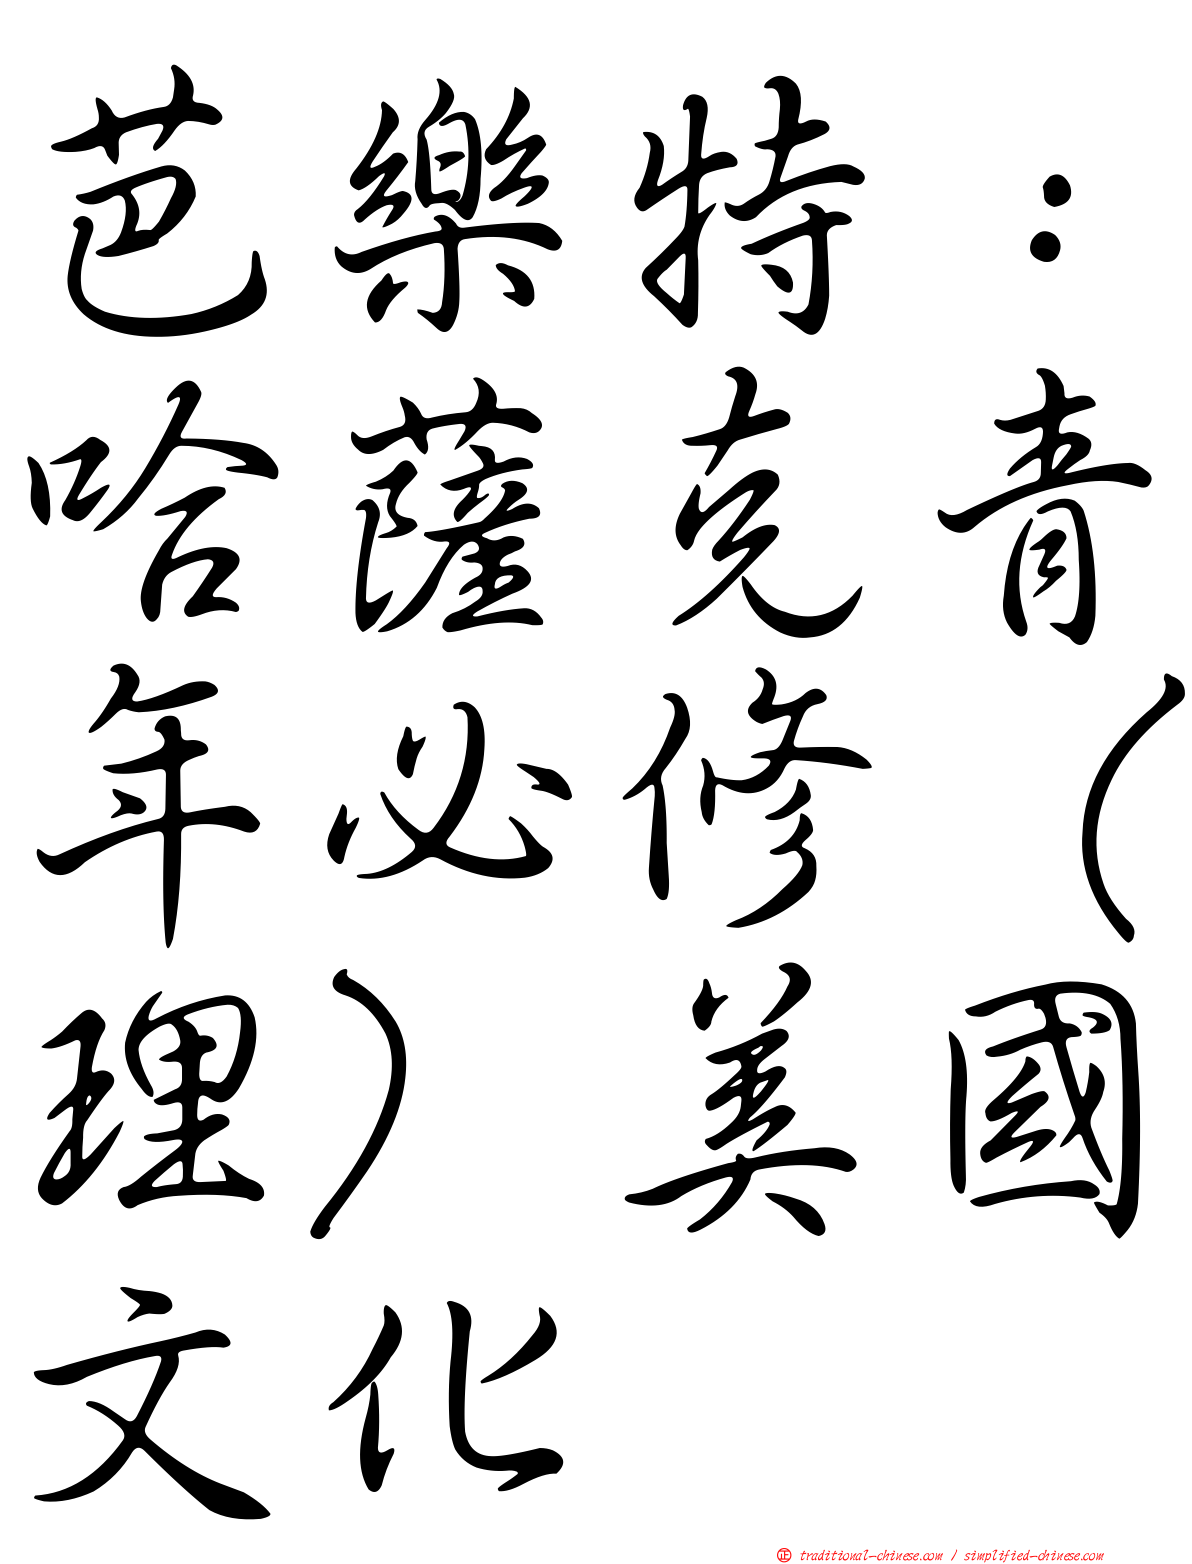 芭樂特：
哈薩克青
年必修（
理）美國
文化
正 traditional-chinese.com / simplified-chinese.com